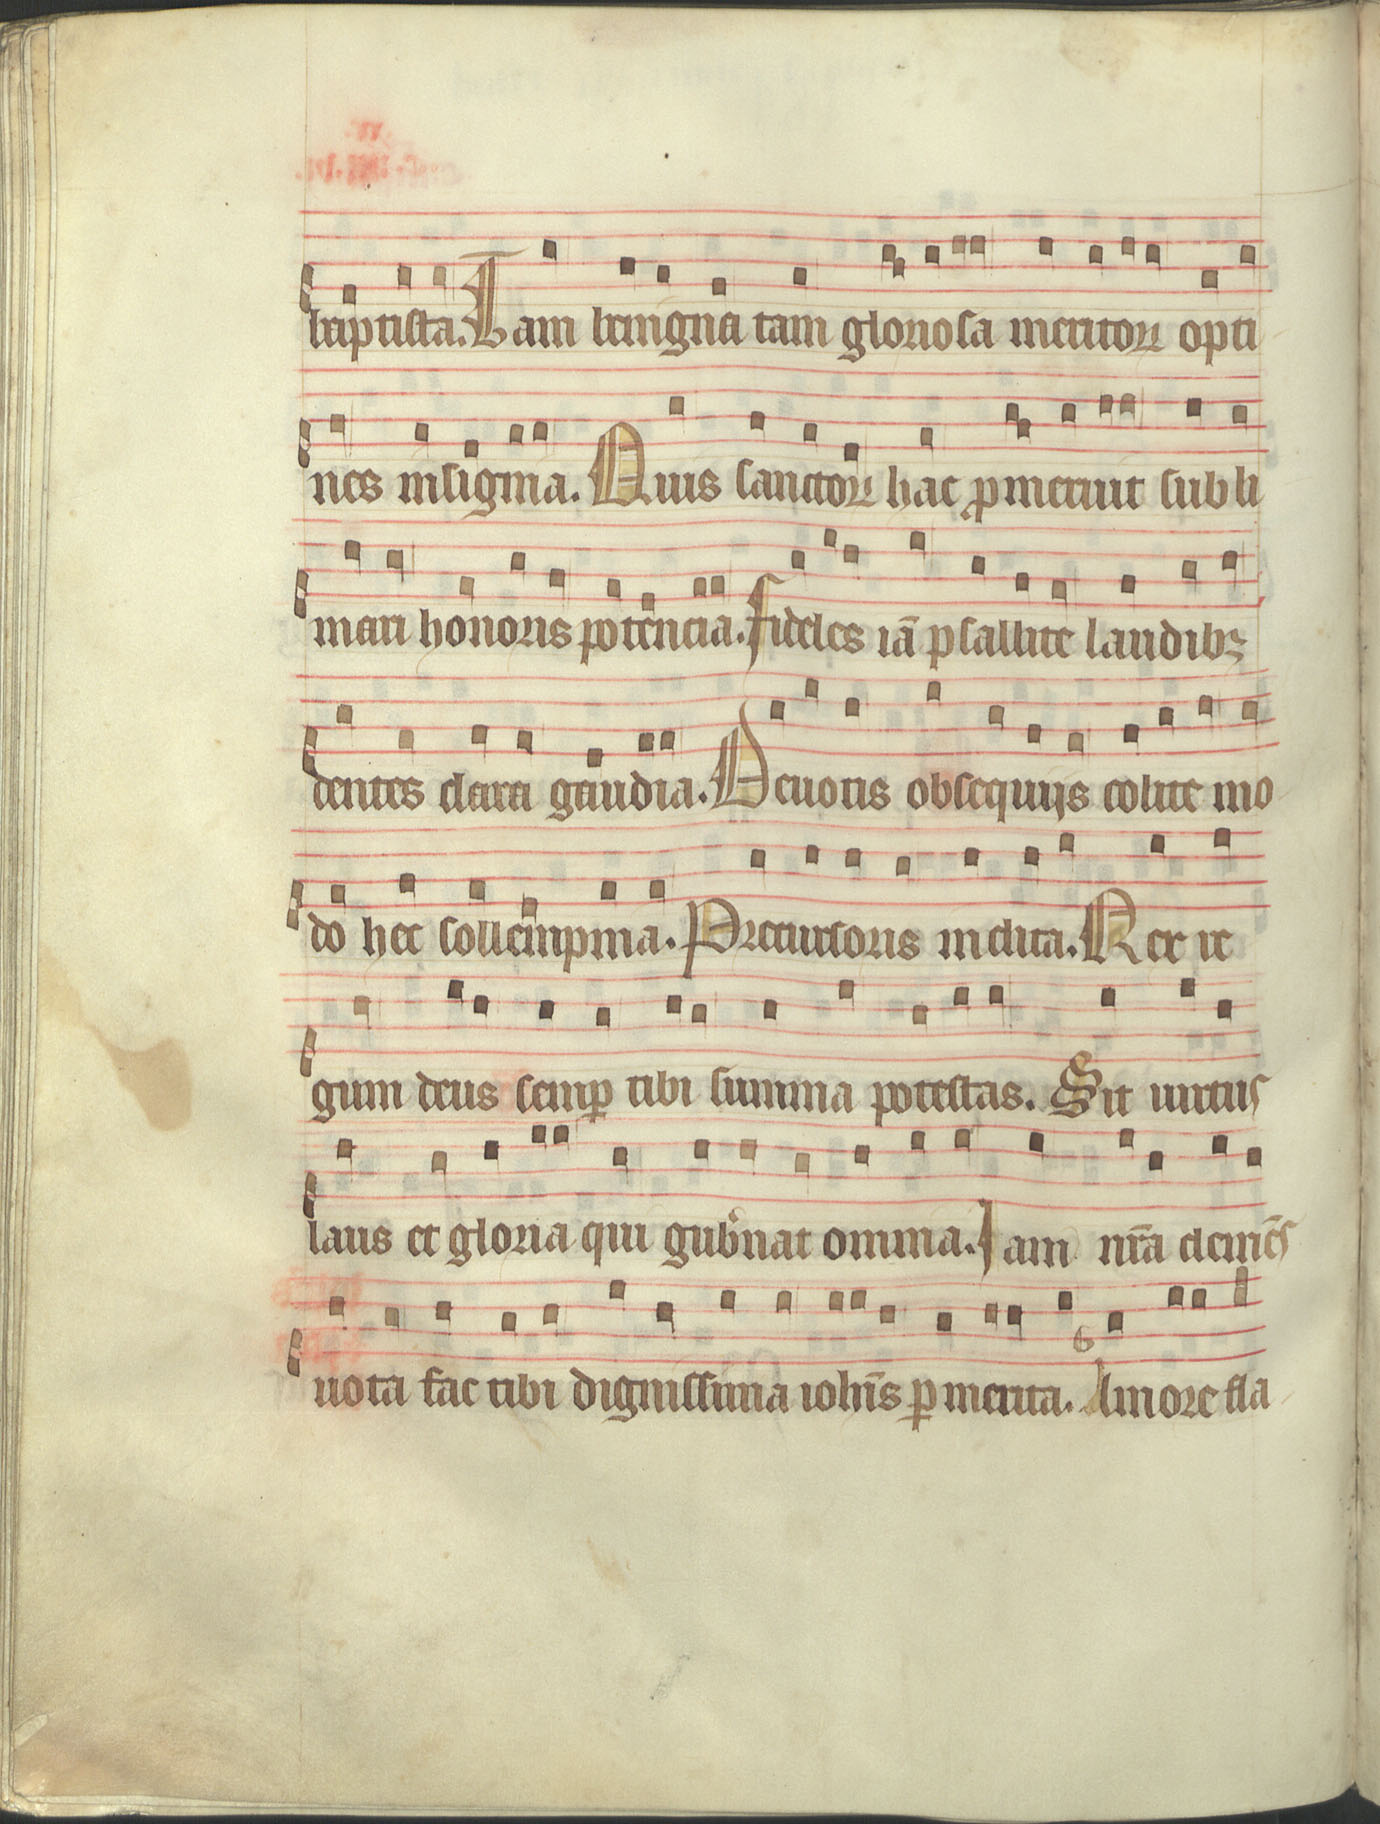 baptista. Tam benigna tam gloriosa meritoꝝ opti
nes insignia. Quis sanctoꝝ hac ꝓmeruit subli
mari honoris potencia. Fideles iā psallite laudibꝫ
dentes clara gaudia. Deuotis obsequijs colite mo
do hec sollempnia. Precursoris inclita. Rex re
gum deus semꝑ tibi summa potestas. Sit uirtus
laus et gloria qui gub̾nat omnia. Iam nr̄a clemēs
uota fac tibi dignissima ioh̄is ꝑ merita. Amore fla